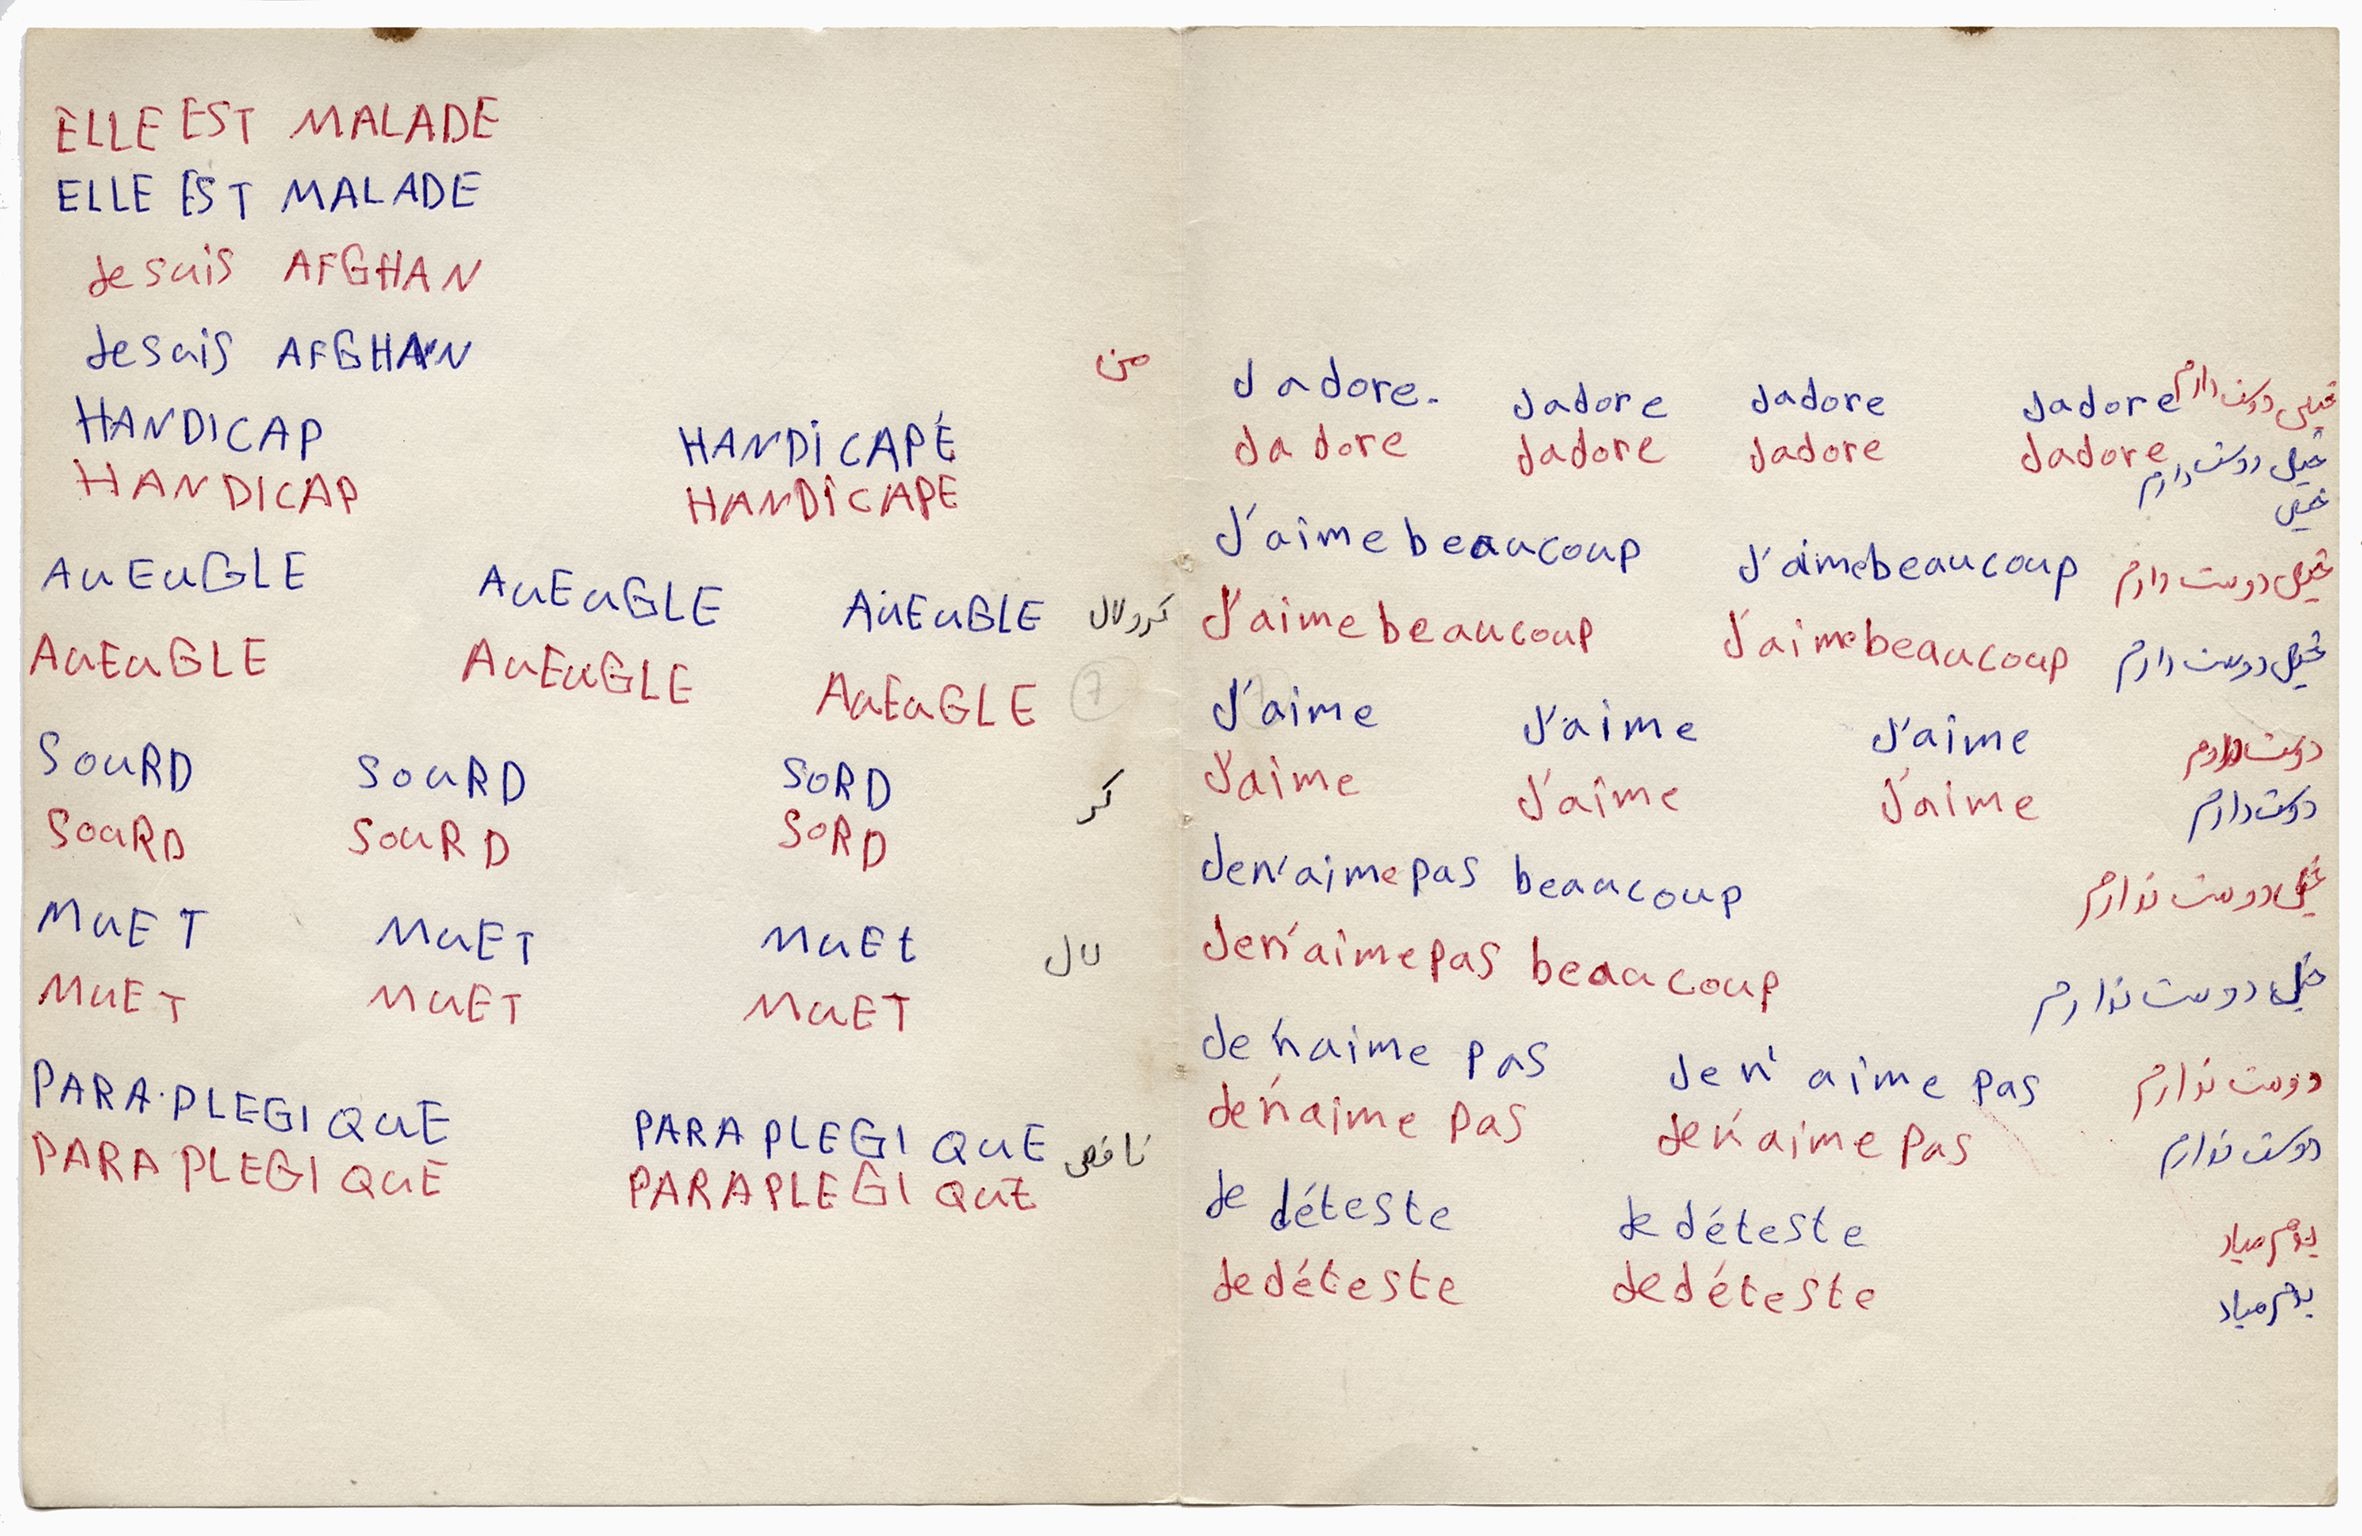 ELLE EST MALADE
ELLE EST MALADE
Je suis AFGHAN
Je suis AFGHAN من
HANDICAP HANDICAPÉ
HANDICAP HANDICAPE
AuEuGLE AuEuGLE AuEuGLE کرولال
AuEuGLE AuEuGLE AuEuGLE 7
SouRD SouRD SoRD کر
SouRD SouRD SoRD
MuET MuET MuEt لال
MuET MuET MuET
PARAPLEGIQuE PARAPLEGIQuE ناقص
PARAPLEGIQuE PARAPLEGIQuE
Jadore. Jadore Jadore Jadore خیلی دوست دارم
Jadore Jadore Jadore Jadore خیلی دوست دارم
خیلی
J'aime beaucoup J'aime beaucoup خیلی دوست دارم
J'aime beaucoup J'aime beaucoup خیلی دوست دارم
J'aime J'aime J'aime دوست دارم
J'aime J'aime J'aime دوست دارم
Je n'aime pas beaucoup خیلی دوست ندارم
Je n'aime pas beaucoup خیلی دوست ندارم
Je n'aime pas Je n'aime pas دوست ندارم
Je n'aime pas Je n'aime pas دوست ندارم
Je déteste Je déteste بدم میاد
Je déteste Je déteste بدم میاد